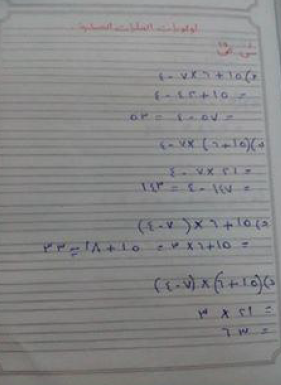 أولويات العمليات الحسابية
١٥ + ٦ × ٧ - ٤
= ١٥ + ٤٢ - ٤
= ٥٧ - ٤ = ٥٣
(١٥ + ٦) × ٧ - ٤
= ٢١ × ٧ - ٤
= ١٤٧ - ٤ = ١٤٣
١٥ + ٦ × (٧ - ٤)
= ١٥ + ٦ × ٣ = ١٥ + ١٨ = ٣٣
(١٥ + ٦) × (٧ - ٤)
= ٢١ × ٣
= ٦٣